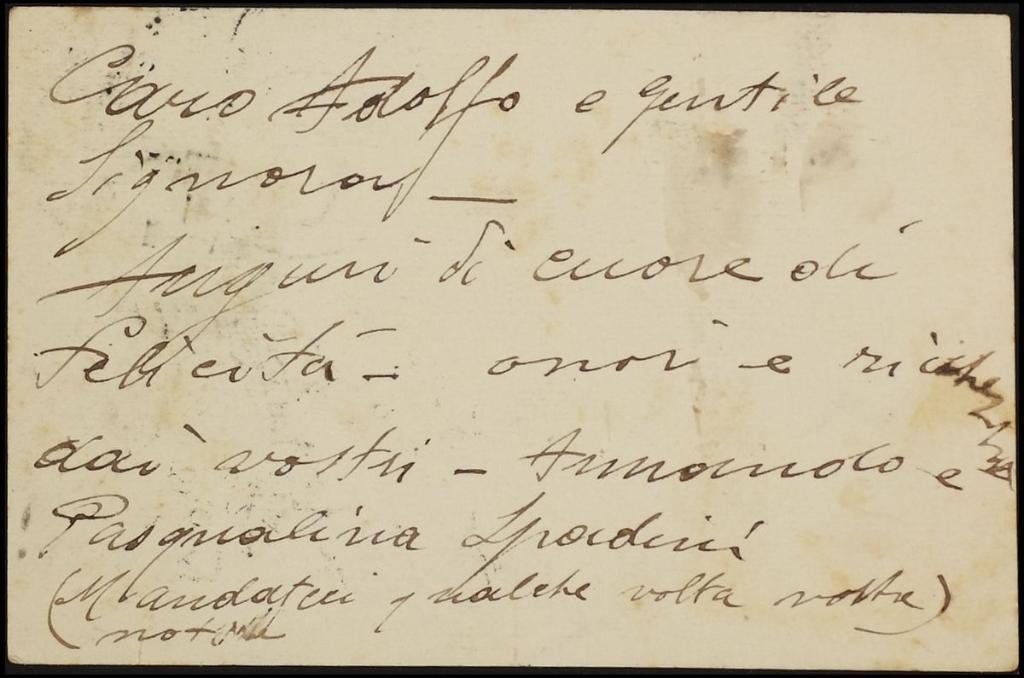 Caro Adolfo e gentile
Signora –
Auguri di cuore di
Felicità – onori e ricchezze
dai vostri – Armando e
Pasqualina Spadini
(Mandateci qualche volta vostre)
notizie